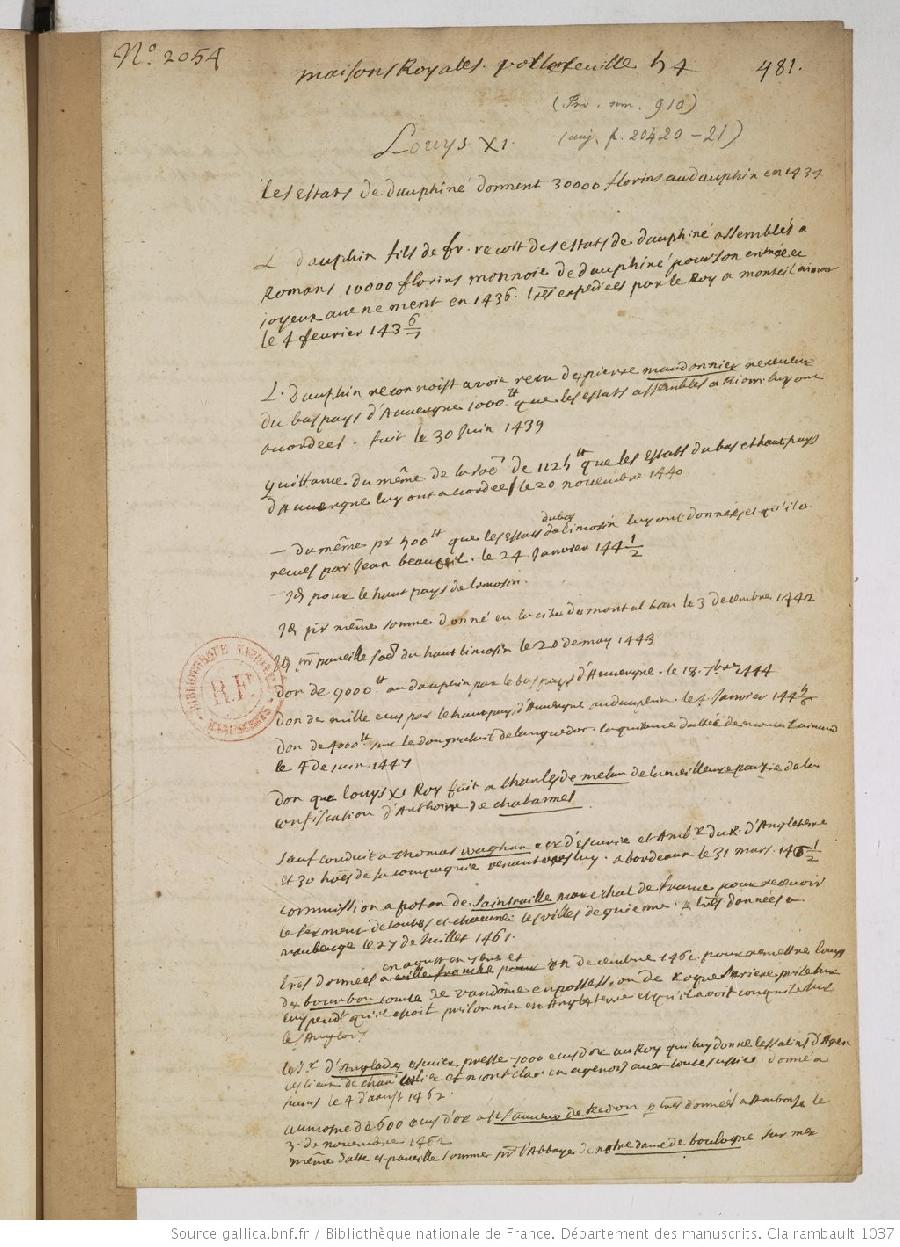 N.º 2054
maisons Royales. portefeuille 54
481.
(Pro. nm. 910)
(auj. f. 20420-21)
Louys XI.
Les estats de dauphiné donnent 30000 florins au dauphin en 1437
L dauphin fils de fr. recoit des estats de dauphiné assemblés a
Romans 10000 florins monnoie de dauphiné pour son entrée et
joyeux avenement en 1436. Lres expediées par le Roy a monteil
le 4 fevrier 143 6/7
L. dauphin reconnoist avoir receu de pierre mandonnier receveur
du bas pays d'Auvergne 1000.tt que les estats assemblés a Riom luy ont
accordees. fait le 30 Juin 1439
quittance du même de la so͞e de 1125tt que les Estats du bas et haut pays
d'Auvergne luy ont accordees le 20 novembre 1440
— du même pr 500tt que les estats du bas limosin luy ont données et qu'il a
receues par Jean beaucueil. le 24 Janvier 144 1/2
— Id pour le haut pays de Limosin.
Id pr même somme donné en la cité de montalban le 3 decembre 1442
Id pr pareille so͞e du haut limosin le 20 de may 1443
don de 9000tt au dauphin par le bas pays d'Auvergne. le 18. 7bre 1444
don de mille ecus par le haut pays d'Auvergne au dauphin le 4 Janvier 144
don de 4000tt sur le don gratuit de languedoc. la quittance dattée de
le 4 de juin 1447
don que Louys XI Roy fait a Charles de melun de la meilleure partie de la
confiscation d'Anthoine de chabannes.
Sauf conduit a thomas waghan d'escurie et Amb.r du R. d'Angleterre
et 30 ho͞es de sa compagnie venant vers luy. a bordeaux le 31 mars. 146 1/2
commission a poton de Saintraille marechal de france pour recevoir
le serment de toutes et chacune les villes de guienne. p lres données a
maubeuge le 27 de Juillet 1461.
en aoust en 7bre et
Lres données a ville franche pour en decembre 1461 pour remettre louys
de bourbon comte de vandome en possess.on de Roque
cuy pend.t qu'il estoit prisonnier en Angleterre et qu'il avoit conquise sur
les Anglois
le S.r d'Anglade escuier preste 1000 ecus d'or au Roy qui luy donne les
lieux de et montclar en agenois avec toute justice donné a
le 4 d'aoust 1462.
aumosne de 600 ecus d'or a St Sauveur de Redon p lres données a Amboise le
3. de novembre 1462
même datte et pareille somme pr l'Abbaye de notre dame de boulogne sur mer
BIBLIOTHEQUE
R.F.
MANUSCRITS
Source gallica.bnf.fr / Bibliothèque nationale de France. Département des manuscrits. Clairambault 1037